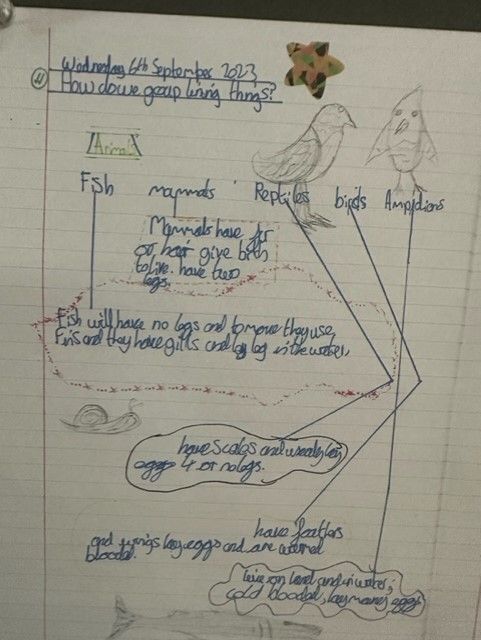 Wednesday 6th September 2023
How do we group living things?
Animals
Fish mammals Reptiles birds Ampidians
Mammals have fur
or hair give birth
to live. have two
legs.
Fish will have no legs and to move they use
Fins and they have gills and lay egg in the water,
have scales and usealy lay
eggs 4 or no legs.
have feathers
and wings lay eggs and are warmed
blooded.
live on land and in water,
cold blooded, lay many eggs